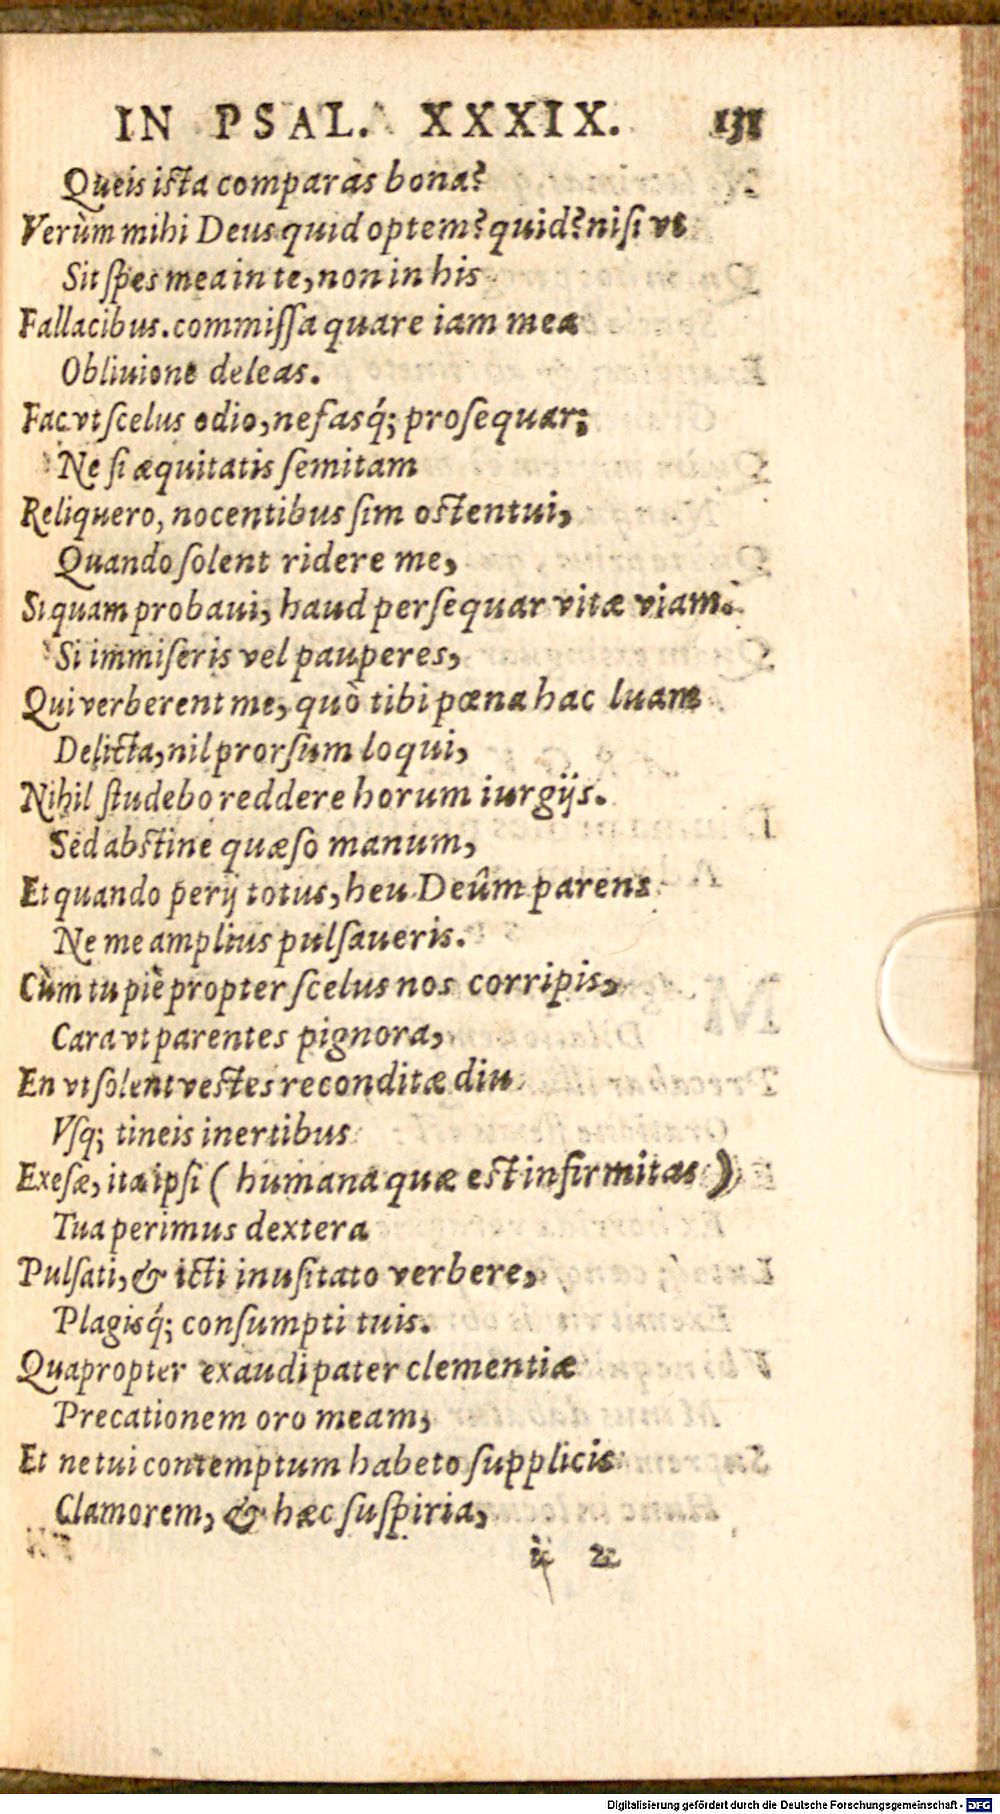 IN PSAL. XXXIX. 131
Queis ista comparas bona?
Verùm mihi Deus quid optem? quid? nisi vt
Sit spes mea in te, non in his
Fallacibus. commissa quare iam mea
Obliuione deleas.
Fac vt scelus odio, nefasq́; prosequar;
Ne si æquitatis semitam
Reliquero, nocentibus sim ostentui,
Quando solent ridere me,
Si quam probaui, haud persequar vitæ viam.
Si immiseris vel pauperes,
Qui verberent me, quò tibi pœna hac luam
Delicta, nil prorsum loqui,
Nihil studebo reddere horum iurgijs.
Sed abstine quæso manum,
Et quando perij totus, heu Deûm parens
Ne me amplius pulsaueris.
Cùm tu piè propter scelus nos corripis,
Cara vt parentes pignora,
En vt solent vestes reconditæ diu
Vsq; tineis inertibus
Exesæ, ita ipsi ( humana quæ est infirmitas )
Tua perimus dextera
Pulsati, & icti inusitato verbere,
Plagisq́; consumpti tuis.
Quapropter exaudi pater clementiæ
Precationem oro meam,
Et ne tui contemptum habeto supplicis
Clamorem, & hæc suspiria,
Digitalisierung gefördert durch die Deutsche Forschungsgemeinschaft - DFG